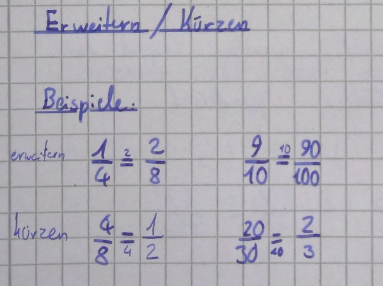 Erweitern / Kürzen
Beispiele:
erweitern 1/4 =^2 2/8 9/10 =^10 90/100
kürzen 4/8 =_4 1/2 20/30 =_10 2/3